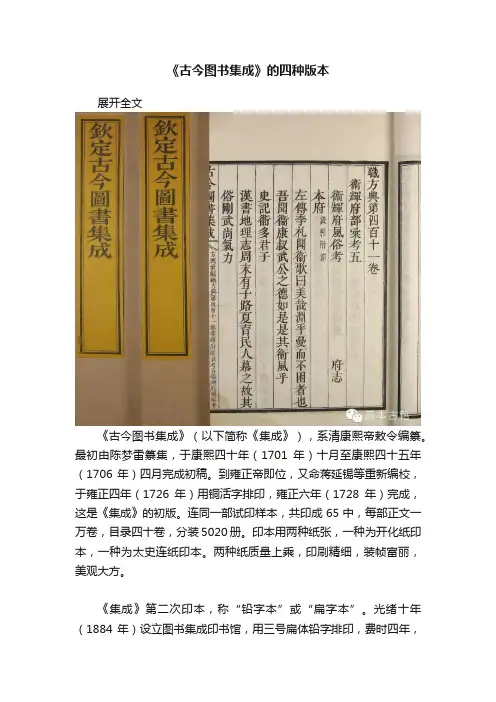 《古今图书集成》的四种版本
展开全文
欽定古今圖書集成
欽定古今圖書集成
職方典第四百十一卷
衞輝府部彙考五
衞輝府風俗考 府志
本府
左傳季札聞衞歌曰美哉淵乎憂而不困者也
吾聞衞康叔武公之德如是是其衞風乎
史記衞多君子
漢書地理志周末有子路夏育民人慕之故其
俗剛武尚氣力
古今圖書集成
《古今图书集成》（以下简称《集成》），系清康熙帝敕令编纂。
最初由陈梦雷纂集，于康熙四十年（1701 年）十月至康熙四十五年
（1706 年）四月完成初稿。到雍正帝即位，又命蒋延锡等重新编校，
于雍正四年（1726 年）用铜活字排印，雍正六年（1728 年）完成，
这是《集成》的初版。连同一部试印样本，共印成 65 中，每部正文一
万卷，目录四十卷，分装 5020 册。印本用两种纸张，一种为开化纸印
本，一种为太史连纸印本。两种纸质量上乘，印刷精细，装帧富丽，
美观大方。
《集成》第二次印本，称“铅字本”或“扁字本”。光绪十年
（1884 年）设立图书集成印书馆，用三号扁体铅字排印，费时四年，